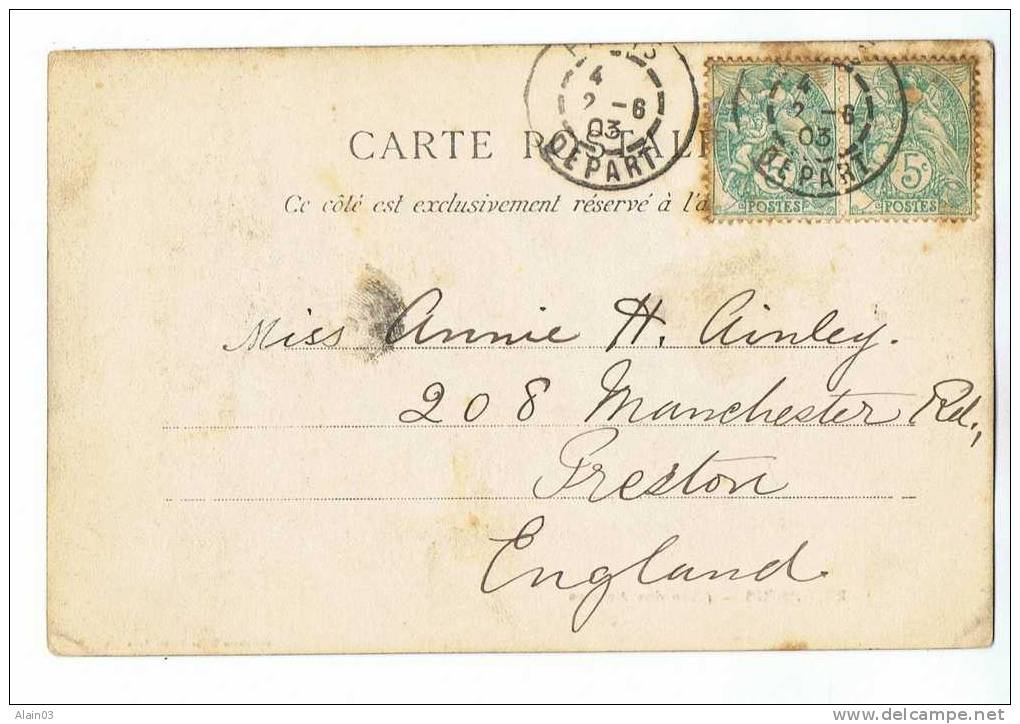 4
2 - 6
03
DEPART
4
2 - 6
03
DEPART
5c
POSTES
POSTES
CARTE POSTALE
Ce côté est exclusivement réservé à l'a
Miss Annie H. Ainley.
208 Manchester Rd.,
Preston
England
Alain03
www.delcampe.net